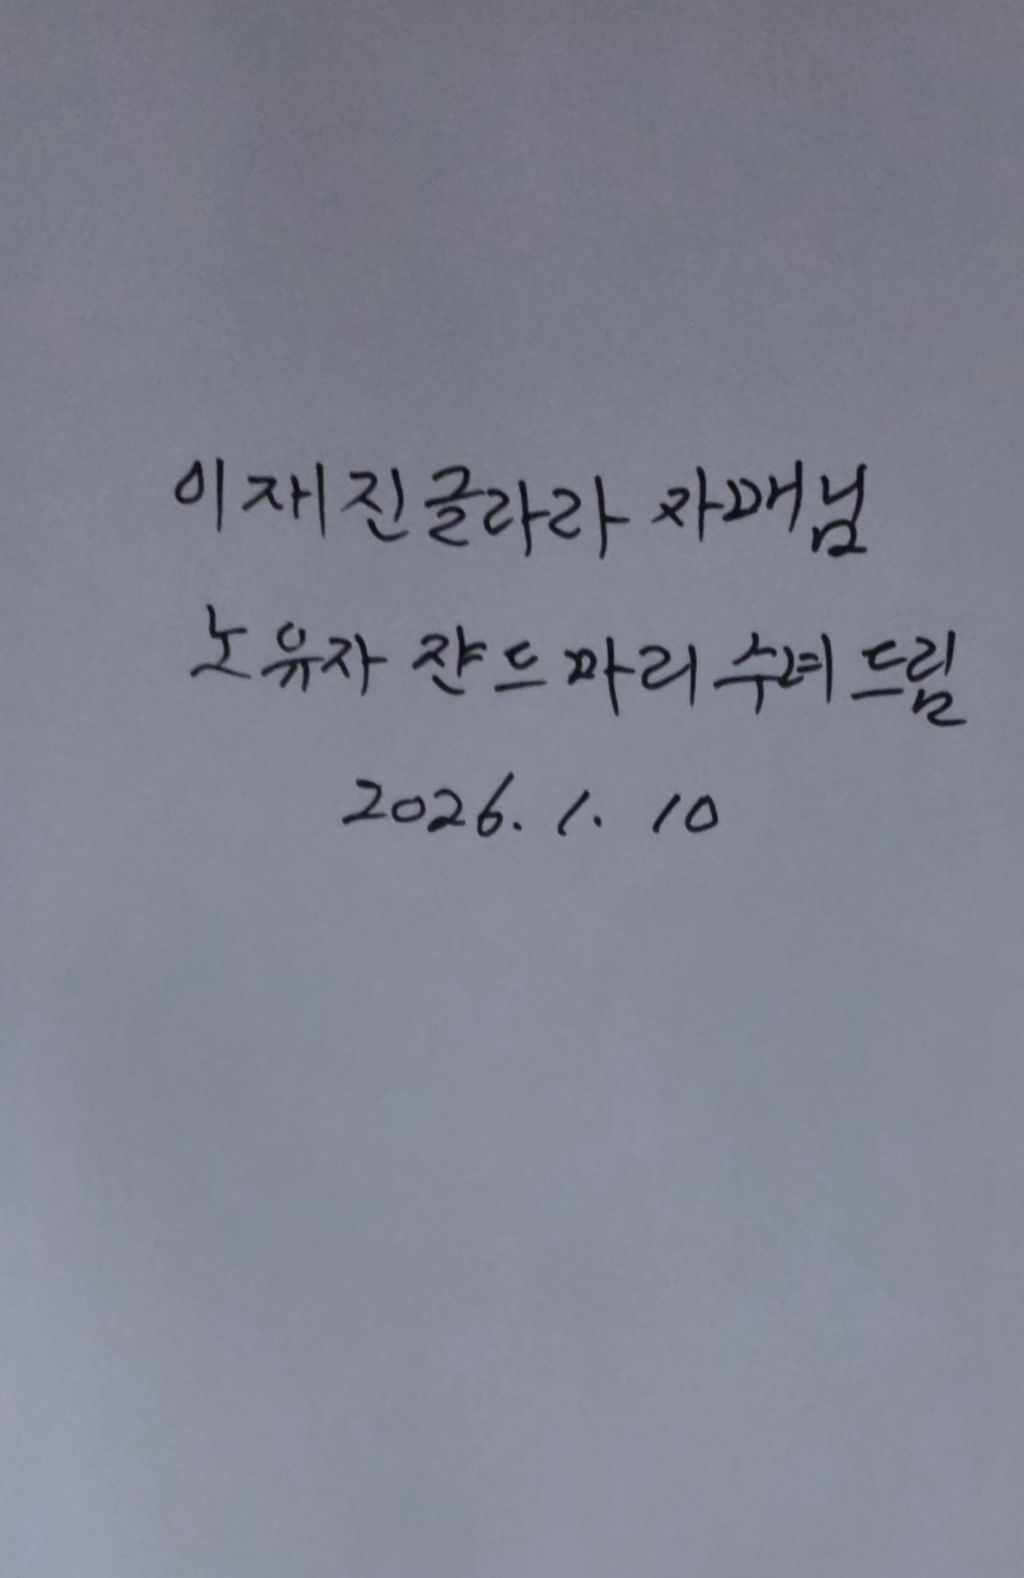 이재진글라라 자매님
노유자 쟌드마리 수녀 드림
2026. 1. 10